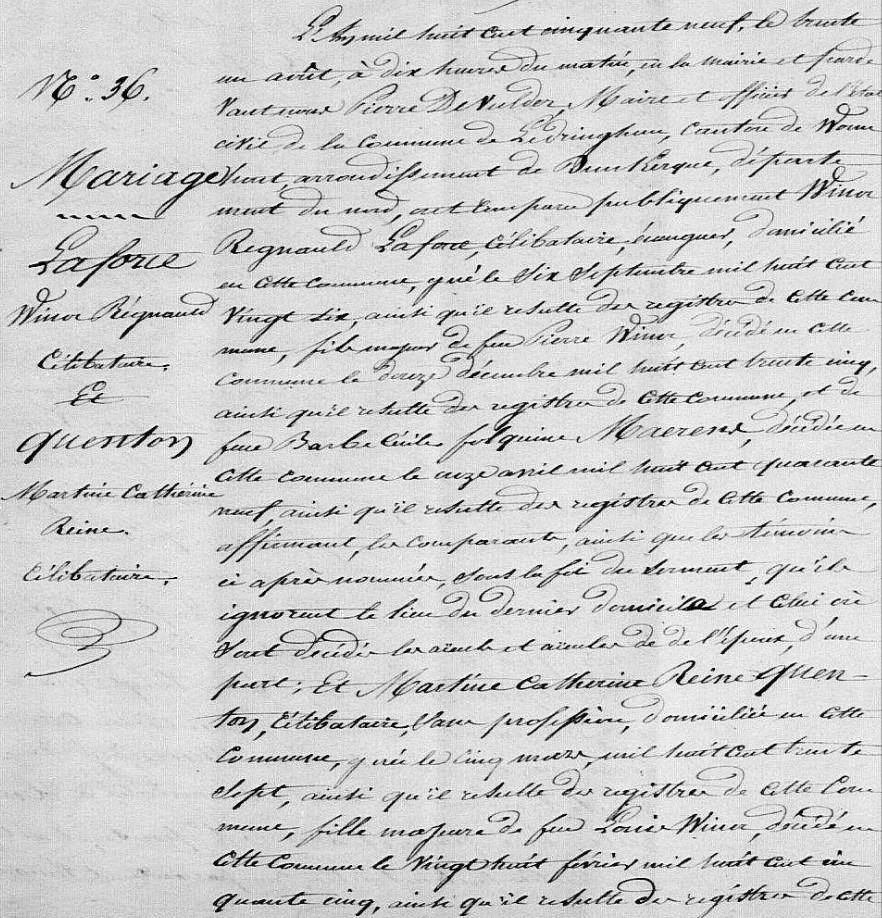 N.° 36.
Mariage
Laforce
Winoc Régnauld
Célibataire.
Et
Quenton
Martine Cathérine
Reine.
Célibataire.
L'An mil huit cent cinquante neuf, le trente
un août, à dix heures du matin, en la mairie et pardе
vant nous Pierre De Vulder, Maire et officier de l'Etat
civil de la Commune de Ledringhem, canton de Worm
hout, arrondissement de Dunkerque, départe
ment du nord, ont comparu publiquement Winoc
Regnauld Laforce, Célibataire, domicilié
en cette commune, y né le Six Septembre mil huit cent
vingt six, ainsi qu'il resulte des registres de cette com
mune, fils majeur de feu Pierre Winoc, décédé en cette
Commune le douze décembre mil huit cent trente cinq,
ainsi qu'il resulte des registres de cette Commune, et de
feue Barbe Cécile folquine Maerens, décédée en
cette commune le onze avril mil huit cent quarante
neuf, ainsi qu'il resulte des registres de cette Commune,
affirmant, les comparants, ainsi que les témoins
ci après nommés, sous la foi du serment, qu'ils
ignorent le lieu du dernier domicile et celui où
sont décédés les aïeuls et aïeules de de l'Epoux, d'une
part; Et Martine Catherine Reine Quen-
ton, Célibataire, Sans profession, domiciliée en cette
Commune, y née le cinq mars, mil huit cent trente
Sept, ainsi qu'il resulte des registres de cette Com
mune, fille majeure de feu Louis Winoc, décédé en
cette Commune le vingt huit février mil huit cent cin
quante cinq, ainsi qu'il resulte des registres de cette